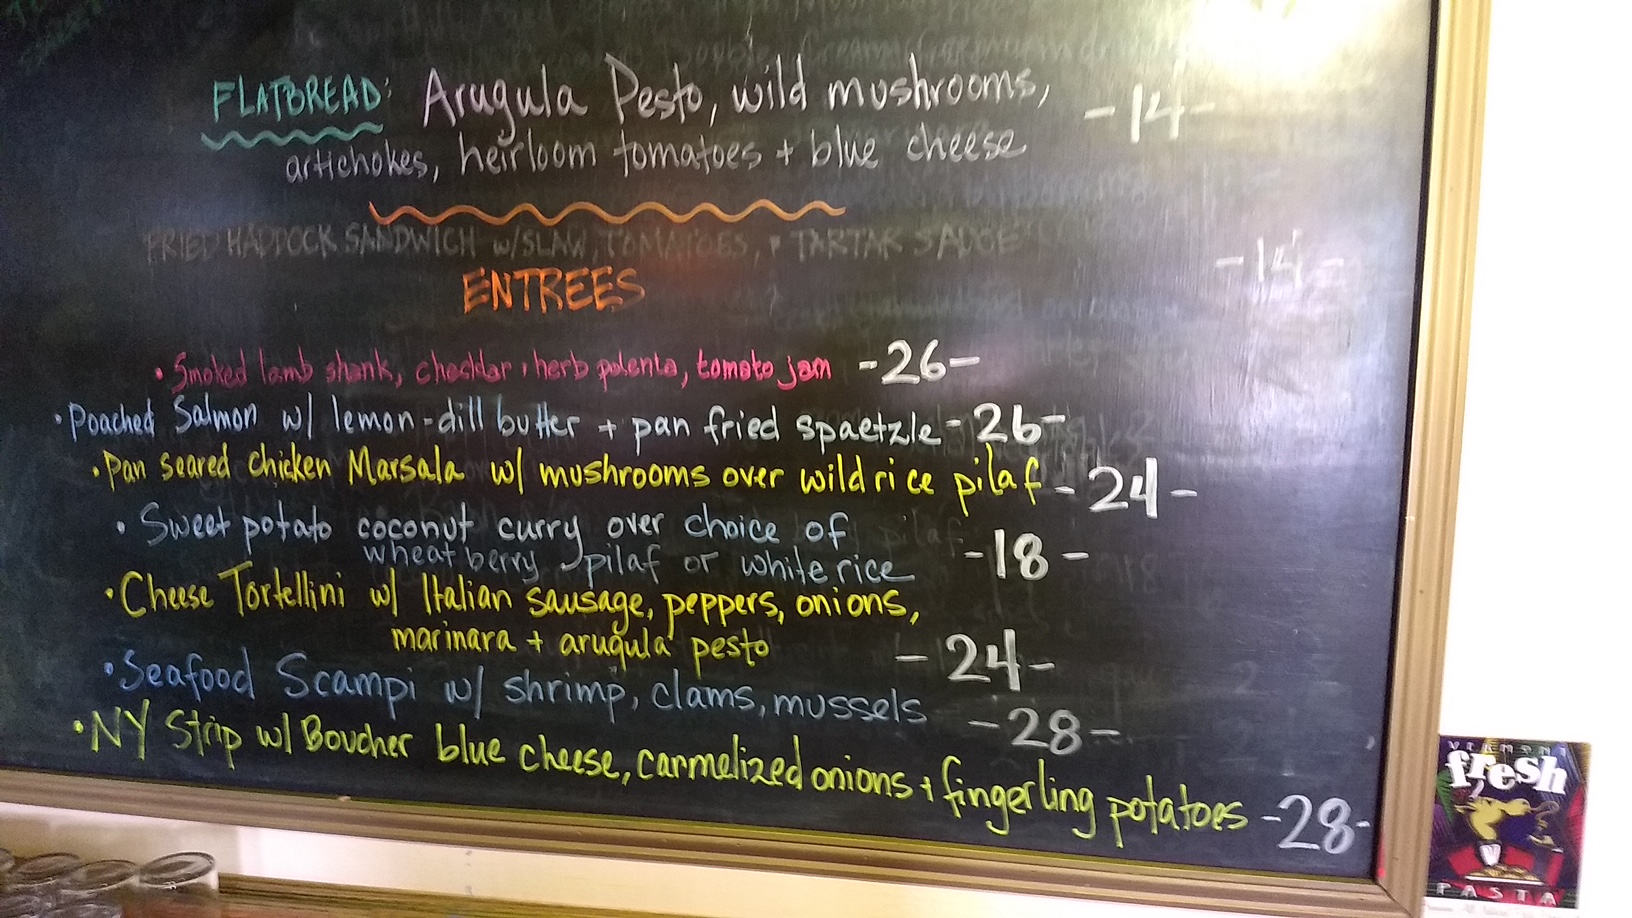 FLATBREAD: Arugula Pesto, wild mushrooms, -14-
artichokes, heirloom tomatoes + blue cheese
FRIED HADDOCK SANDWICH w/SLAW, TOMATOES, + TARTAR SAUCE -14-
ENTREES
• Smoked lamb shank, cheddar + herb polenta, tomato jam -26-
• Poached Salmon w/ lemon-dill butter + pan fried spaetzle -26-
• Pan seared chicken Marsala w/ mushrooms over wild rice pilaf -24-
• Sweet potato coconut curry over choice of
wheat berry pilaf or white rice -18-
• Cheese Tortellini w/ Italian sausage, peppers, onions,
marinara + arugula pesto -24-
• Seafood Scampi w/ shrimp, clams, mussels -28-
• NY Strip w/ Boucher blue cheese, carmelized onions + fingerling potatoes -28-
VERMONT
fresh
PASTA